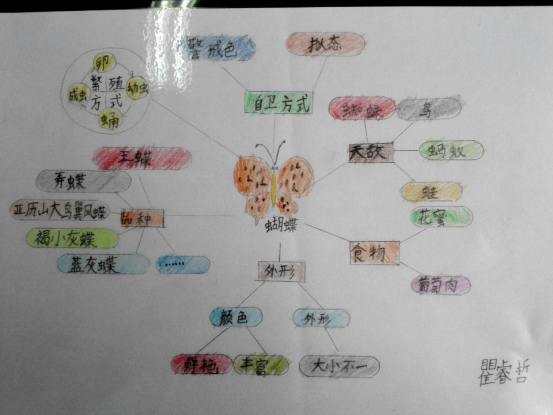 警戒色
拟态
自卫方式
卵
繁殖
方式
成虫
幼虫
蛹
蜘蛛
鸟
天敌
蚂蚁
蛙
王蝶
弄蝶
亚历山大鸟翼凤蝶
品种
褐小灰蝶
蓝灰蝶
……
蝴蝶
食物
花蜜
葡萄肉
外形
颜色
外形
鲜艳
丰富
大小不一
瞿睿哲